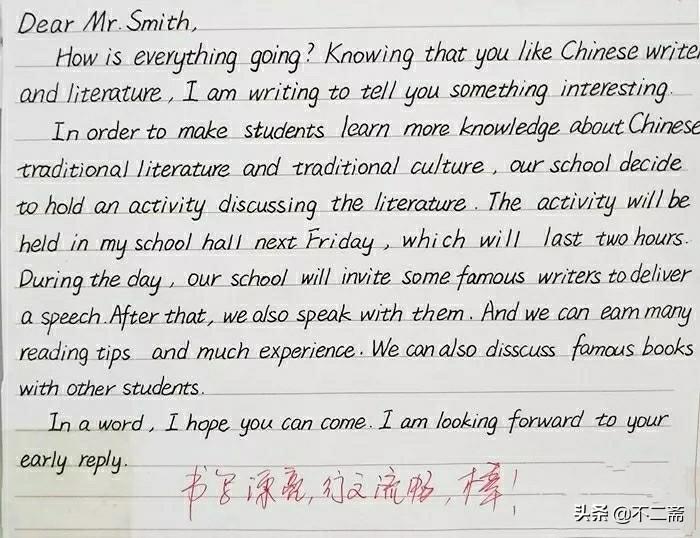 Dear Mr. Smith,
How is everything going? Knowing that you like Chinese write
and literature, I am writing to tell you something interesting.
In order to make students learn more knowledge about Chinese
traditional literature and traditional culture, our school decide
to hold an activity discussing the literature. The activity will be
held in my school hall next Friday, which will last two hours.
During the day, our school will invite some famous writers to deliver
a speech. After that, we also speak with them. And we can earn many
reading tips and much experience. We can also disscuss famous books
with other students.
In a word, I hope you can come. I am looking forward to your
early reply.
书写漂亮,行文流畅,棒!
头条 @不二斋